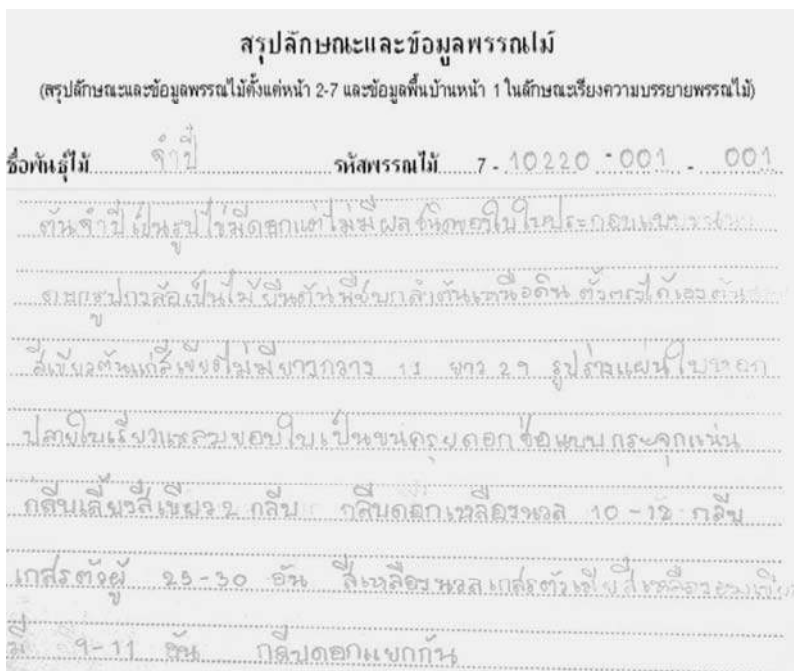 สรุปลักษณะและข้อมูลพรรณไม้
(สรุปลักษณะและข้อมูลพรรณไม้ตั้งแต่หน้า 2-7 และข้อมูลพื้นบ้านหน้า 1 ในลักษณะเรียงความบรรยายพรรณไม้)
ชื่อพันธุ์ไม้ จำปี รหัสพรรณไม้ 7 - 10220 - 001 - 001
ต้นจำปีเป็นรูปไข่มีดอกแต่ไม่มีผล ชนิดของใบใบประกอบแบบ
ดอกรูป เป็นไม้ยืนต้น พืชบกลำต้นเหนือดิน ตั้งตรงได้เอง ต้น
สีเขียวต้นแก่สีเขียดไม่มียางกวาง 11 ยาว 29 รูปร่างแผ่นใบหอก
ปลายใบเรียวแหลมขอบใบเป็นขนครุยดอกช่อแบบกระจุกแน่น
กลีบเลี้ยงสีเขียว 2 กลีบ กลีบดอกเหลืองนวล 10 - 12 กลีบ
เกสรตัวผู้ 25-30 อัน สีเหลืองนวลเกสรตัวเมียสีเหลืองอมเขียว
มี 9-11 อัน กลีบดอกแยกกัน